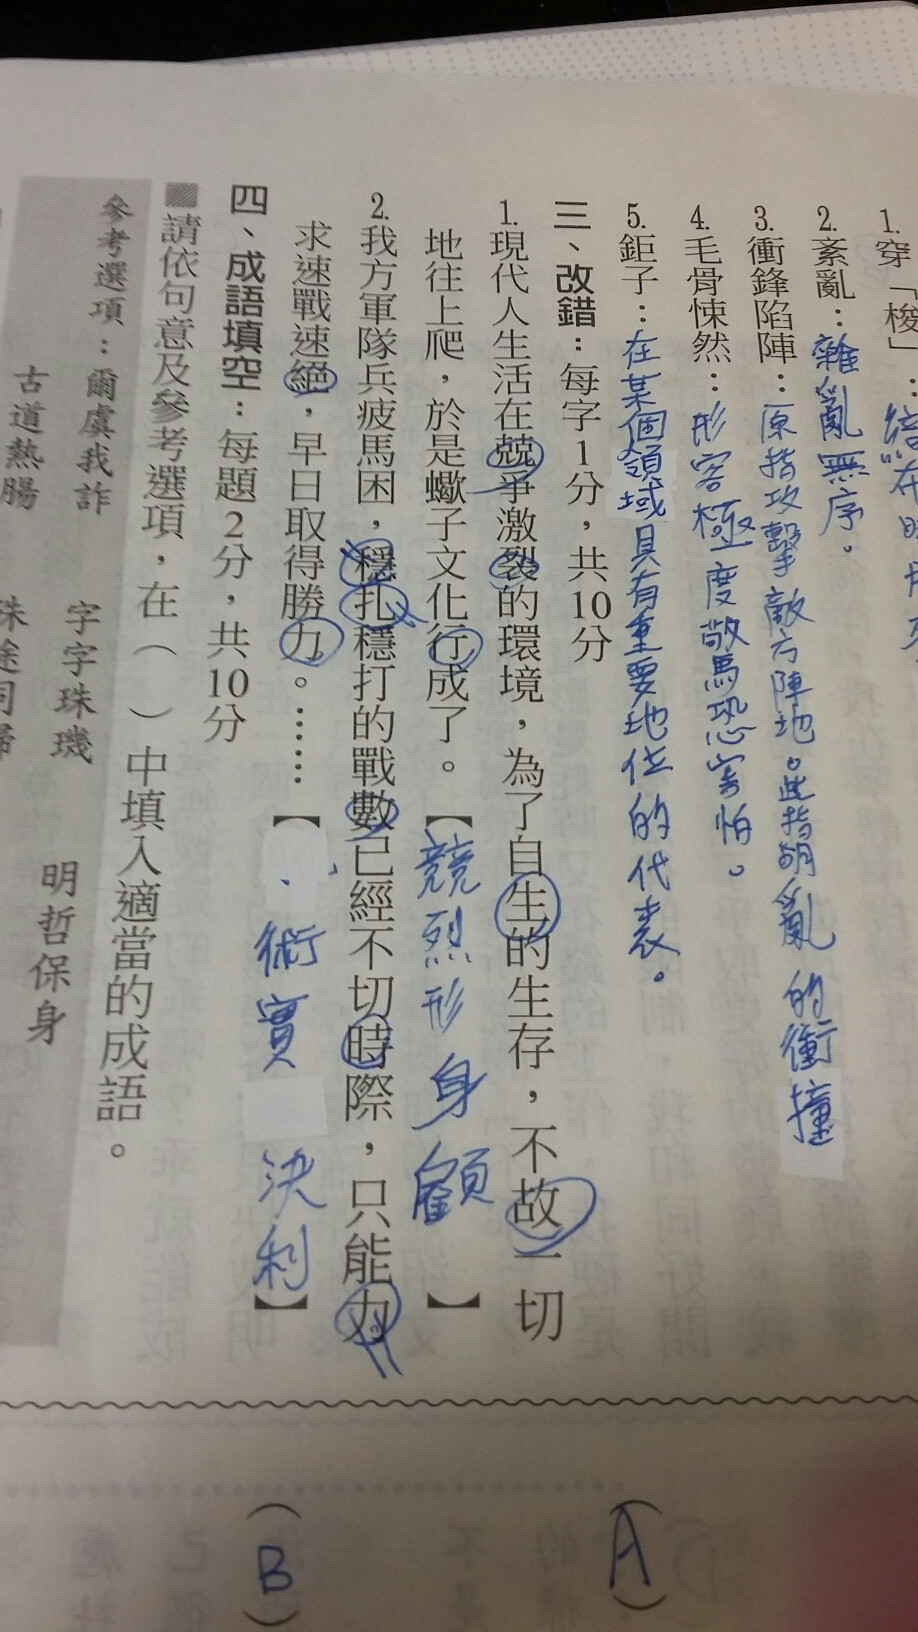 1. 穿「梭」：
2. 紊亂：雜亂無序。
3. 衝鋒陷陣：原指攻擊敵方陣地。此指胡亂的衝撞
4. 毛骨悚然：形容極度驚恐害怕。
5. 鉅子：在某個領域具有重要地位的代表。
三、改錯：每字1分，共10分
1. 現代人生活在兢爭激裂的環境，為了自生的生存，不故一切
地往上爬，於是蠍子文化行成了。【競烈形身顧】
2. 我方軍隊兵疲馬困，穩扎穩打的戰數已經不切時際，只能力
求速戰速絕，早日取得勝力。……【、術實 決利】
四、成語填空：每題2分，共10分
■請依句意及參考選項，在（ ）中填入適當的成語。
參考選項：爾虞我詐 字字珠璣 明哲保身
古道熱腸 殊途同歸
(A)
(B)